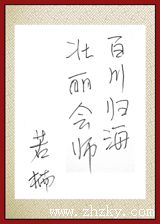 百川归海
壮丽会师
若楠
www.zhzky.com